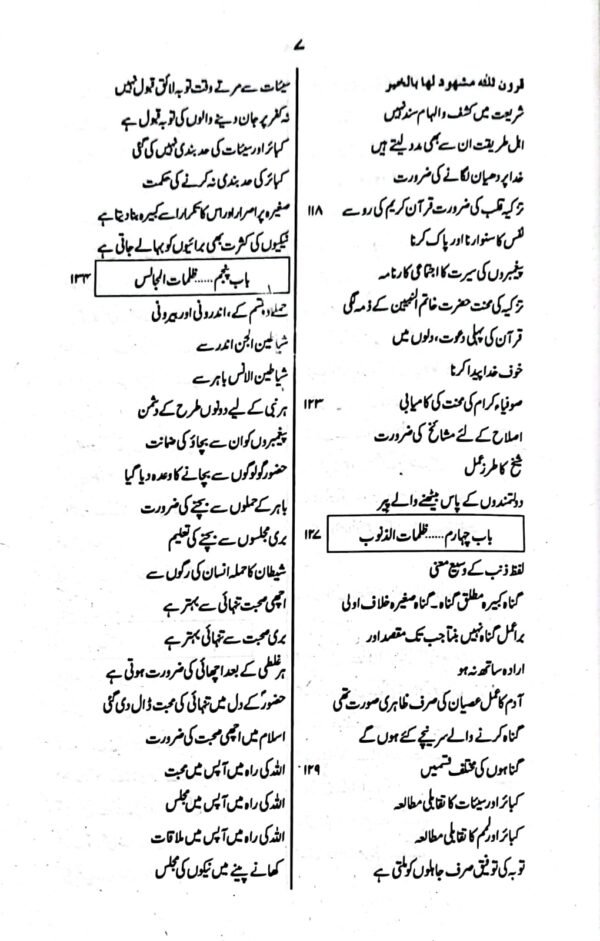 ۷
قرون ثلثہ مشہود لہا بالخیر
شریعت میں کشف و الہام سند نہیں
اہل طریقت ان سے بھی مدد لیتے ہیں
خدا پر دھیان لگانے کی ضرورت
تزکیہ قلب کی ضرورت قرآن کریم کی رو سے ۱۱۸
نفس کا سنوارنا اور پاک کرنا
پیغمبروں کی سیرت کا اجتماعی کارنامہ
تزکیہ کی محنت حضرت خاتم النبیین کے ذمہ لگی
قرآن کی پہلی دعوت، دلوں میں
خوف خدا پیدا کرنا
صوفیاء کرام کی محنت کی کامیابی ۱۲۳
اصلاح کے لئے مشائخ کی ضرورت
شیخ کا طرز عمل
دولتمندوں کے پاس بیٹھنے والے پیر
باب چہارم...... ظلمات الذنوب ۱۲۷
لفظ ذنب کے وسیع معنی
گناہ کبیرہ مطلق گناہ۔ گناہ صغیرہ خلاف اولی
برا عمل گناہ نہیں بنتا جب تک مقصد اور
ارادہ ساتھ نہ ہو
آدم کا عمل عصیان کی صرف ظاہری صورت تھی
گناہ کرنے والے سر نیچے کئے ہوں گے
گناہوں کی مختلف قسمیں ۱۲۹
کبائر اور سیئات کا تقابلی مطالعہ
کبائر اور لمم کا تقابلی مطالعہ
توبہ کی توفیق صرف جاہلوں کو ملتی ہے
سیئات سے مرتے وقت توبہ لائق قبول نہیں
نہ کفر پر جان دینے والوں کی توبہ قبول ہے
کبائر اور سیئات کی حد بندی نہیں کی گئی
کبائر کی حد بندی نہ کرنے کی حکمت
صغیرہ پر اصرار اور اس کا تکرار اسے کبیرہ بنا دیتا ہے
نیکیوں کی کثرت بھی برائیوں کو بہا لے جاتی ہے
باب پنجم...... ظلمات المجالس ۱۳۴
حملے دو قسم کے، اندرونی اور بیرونی
شیاطین الجن اندر سے
شیاطین الانس باہر سے
ہر نبی کے لیے دونوں طرح کے دشمن
پیغمبروں کو ان سے بچاؤ کی ضمانت
حضور کو لوگوں سے بچانے کا وعدہ دیا گیا
باہر کے حملوں سے بچنے کی ضرورت
بری مجلسوں سے بچنے کی تعلیم
شیطان کا حملہ انسان کی رگوں سے
اچھی صحبت تنہائی سے بہتر ہے
بری صحبت سے تنہائی بہتر ہے
ہر غلطی کے بعد اچھائی کی ضرورت ہوتی ہے
حضورؐ کے دل میں تنہائی کی محبت ڈال دی گئی
اسلام میں اچھی صحبت کی ضرورت
اللہ کی راہ میں آپس میں محبت
اللہ کی راہ میں آپس میں مجلس
اللہ کی راہ میں آپس میں ملاقات
کھانے پینے میں نیکوں کی مجلس